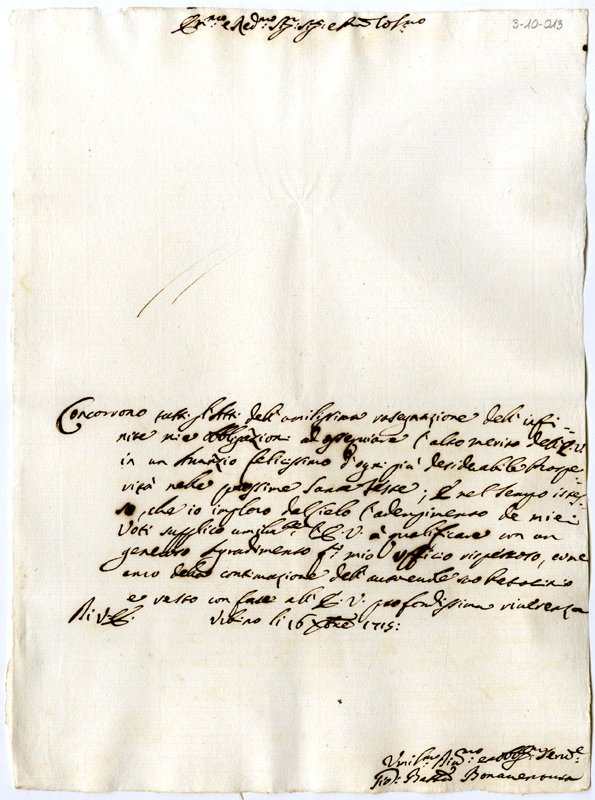 3-10-213
Em.mo e Red.mo Sig: Sig: e Pron Col.mo
Concorrono tutti gl'Atti dell'umilissima rasegnazione dell'infi=
nite mie obbligazioni ad ossequiare l'alto merito dell'E.V.
in un Annuzio felicissimo d'ogni più desiderabile Prospe
rità nelle prossime Sante Feste; E nel tempo istes
so, che io imploro dal Cielo l'adempimento de miei
Voti supplico umilm.te l'E.V. à qualificare con un
generoso Agradimento il mio Ufficio rispettoso, come
anco della continuazione dell'autorevole suo Patrocinio
e resto con fare all'E.V. profondissima riverenza
Di V.E. Urbino li 16 Xbre 1715:
Umil.mo Di.mo: e obblig.mo Serv.e
Gio: Batt.a Bonaventura